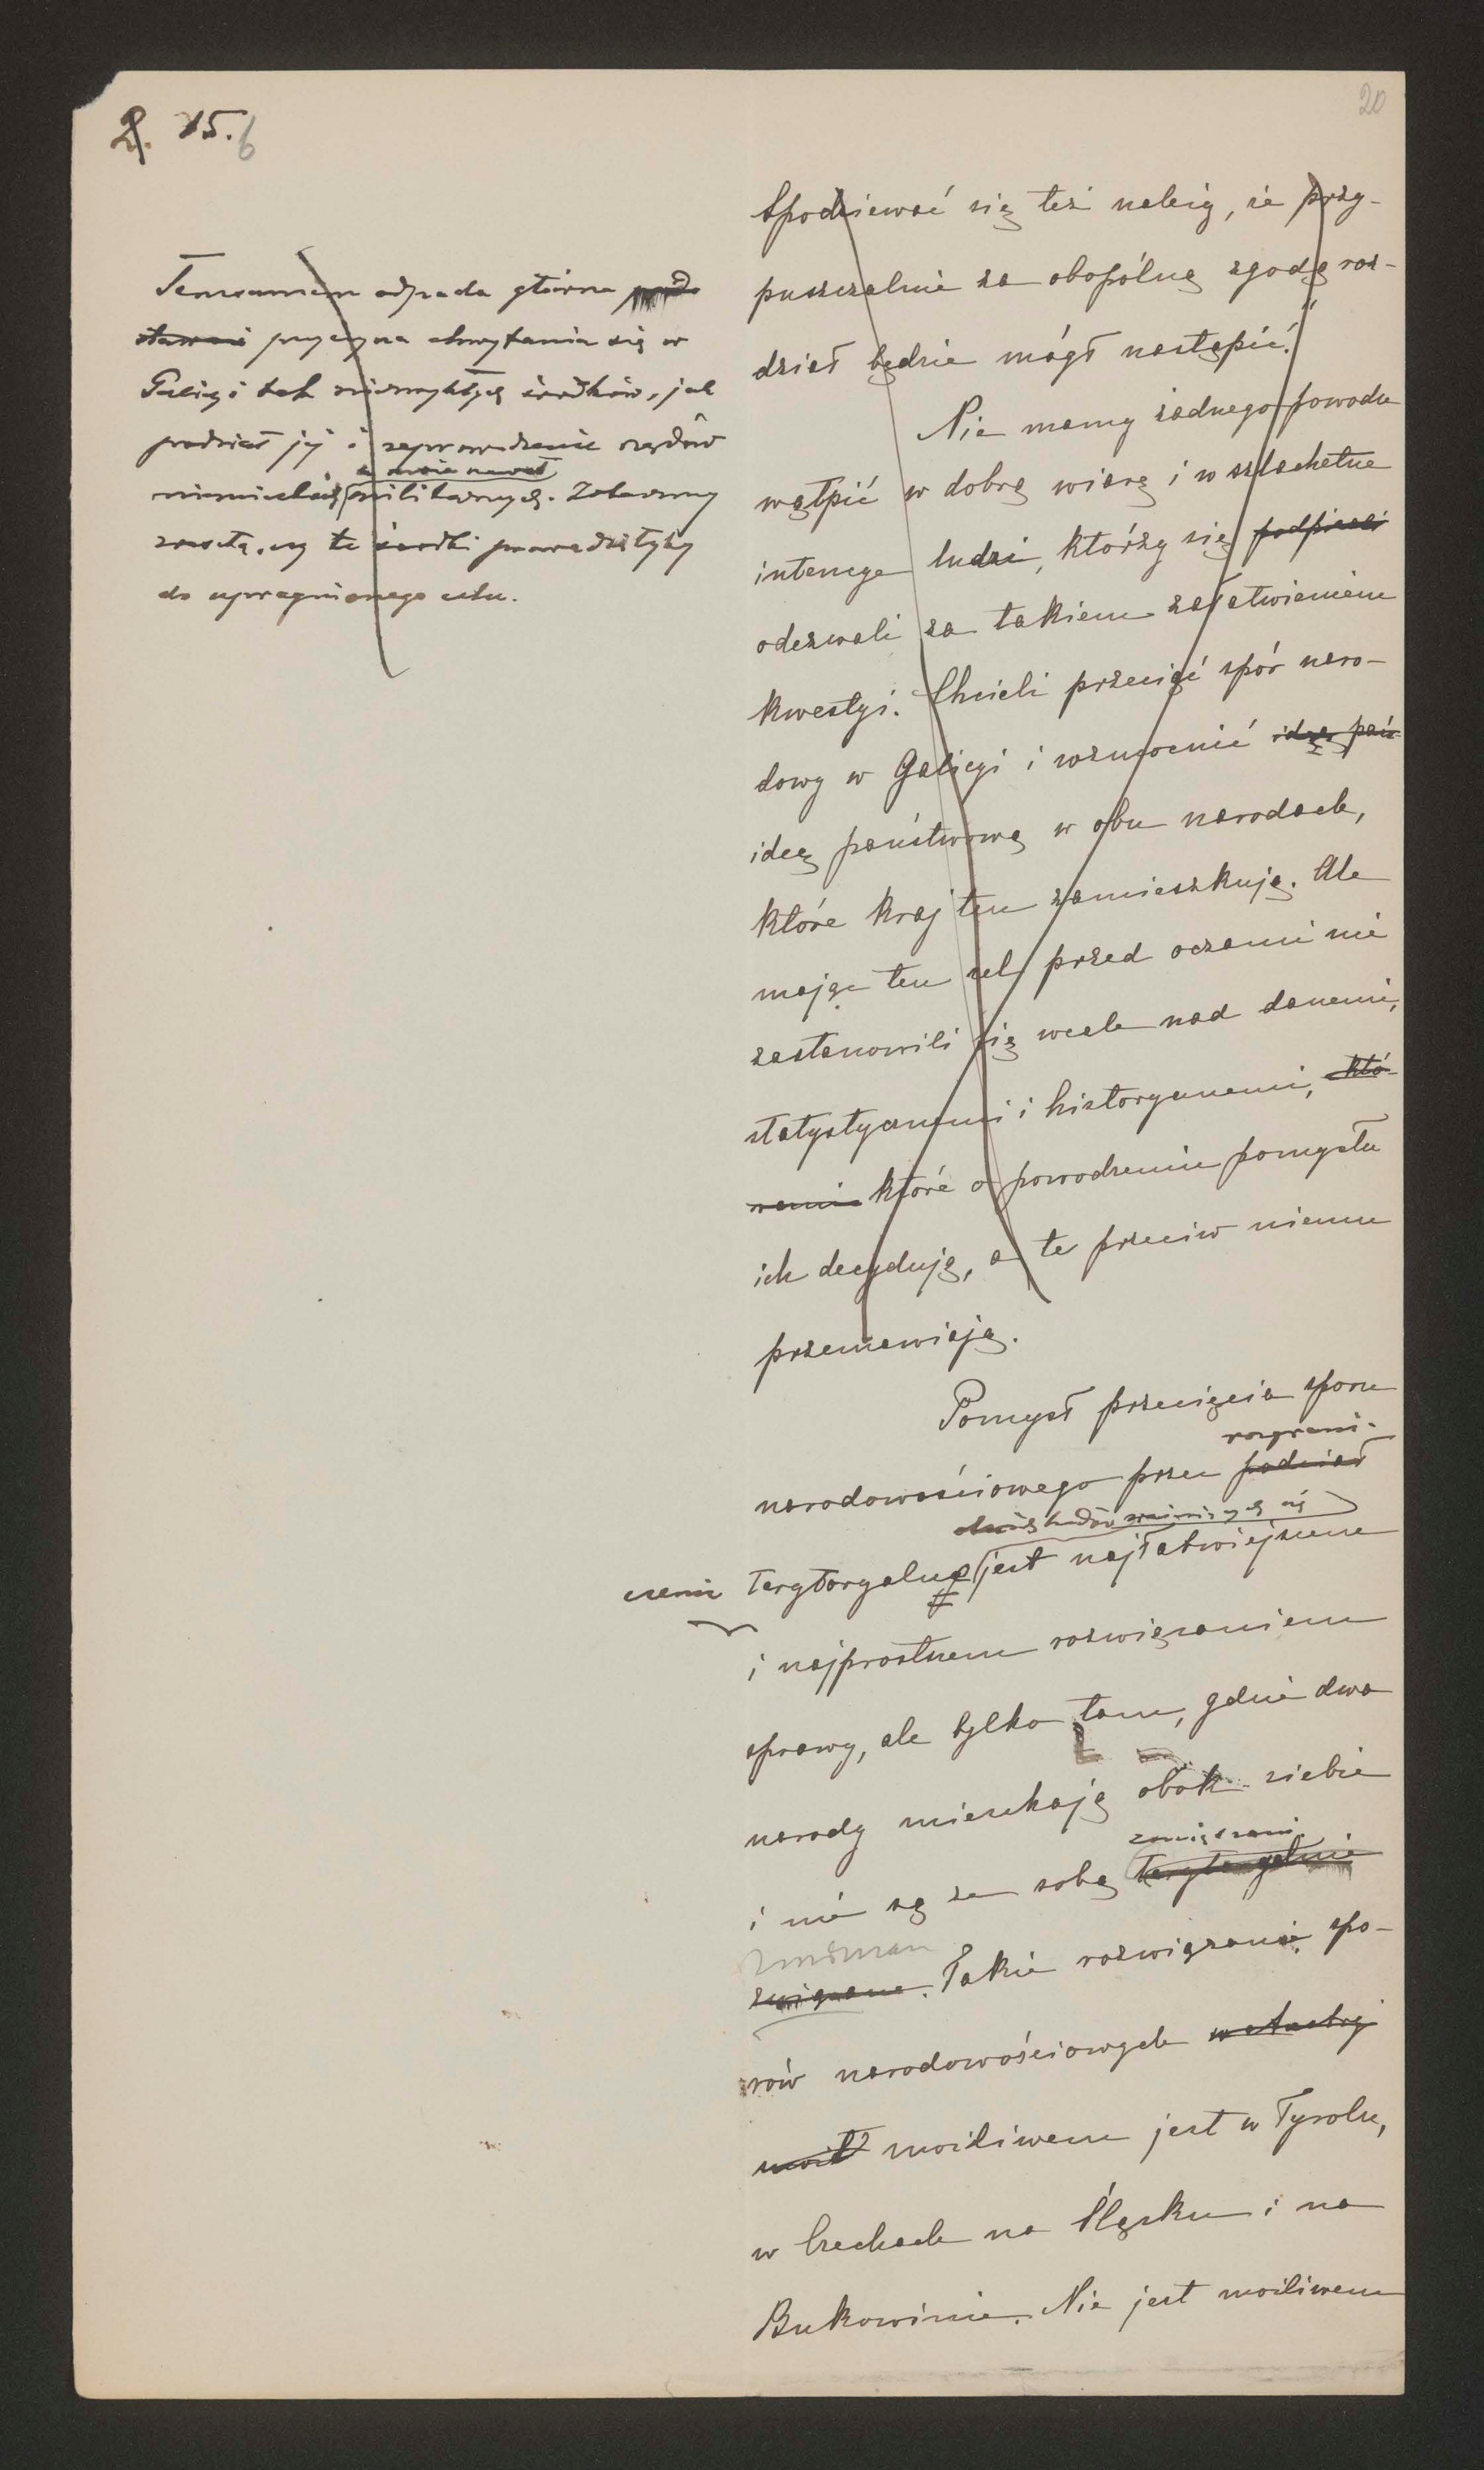 20
15.
6
Temsamem odpada główna
przyczyna chwytania się w
Galicyi tak niezwykłych środków, jak
podział jej i zaprowadzenie rządów
a może nawet
niemieckich militarnych. Zobaczmy
zresztą, czy te środki prowadziłyby
do upragnionego celu.
Spodziewać się też należy, że przy-
puszczalnie za obopólną zgodą roz-
dział będzie mógł nastąpić."
Nie mamy żadnego powodu
wątpić w dobrą wiarę i w szlachetne
intencye ludzi, którzy się podpisali
odezwali za takiem załatwieniem
kwestyi. Chcieli przeciąć spór naro-
dowy w Galicyi i wzmocnić ideę pań-
ideę państwową w obu narodach,
które kraj ten zamieszkują. Ale
mając ten cel przed oczami nie
zastanowili się wcale nad danemi,
statystycznemi i historycznemi, któ-
remi które o powodzeniu pomysłu
ich decydują, a te przeciw niemu
przemawiają.
Pomysł przecięcia sporu
rozgrani-
narodowościowego przez podział
ludów
czenie terytoryalne jest najłatwiejszem
i najprostszem rozwiązaniem
sprawy, ale tylko tam, gdzie dwa
narody mieszkają obok siebie
i nie są ze sobą terytoryalnie
związane. Takie rozwiązanie spo-
rów narodowościowych w Austryi
możliwem jest w Tyrolu,
w Czechach na Śląsku i na
Bukowinie. Nie jest możliwem